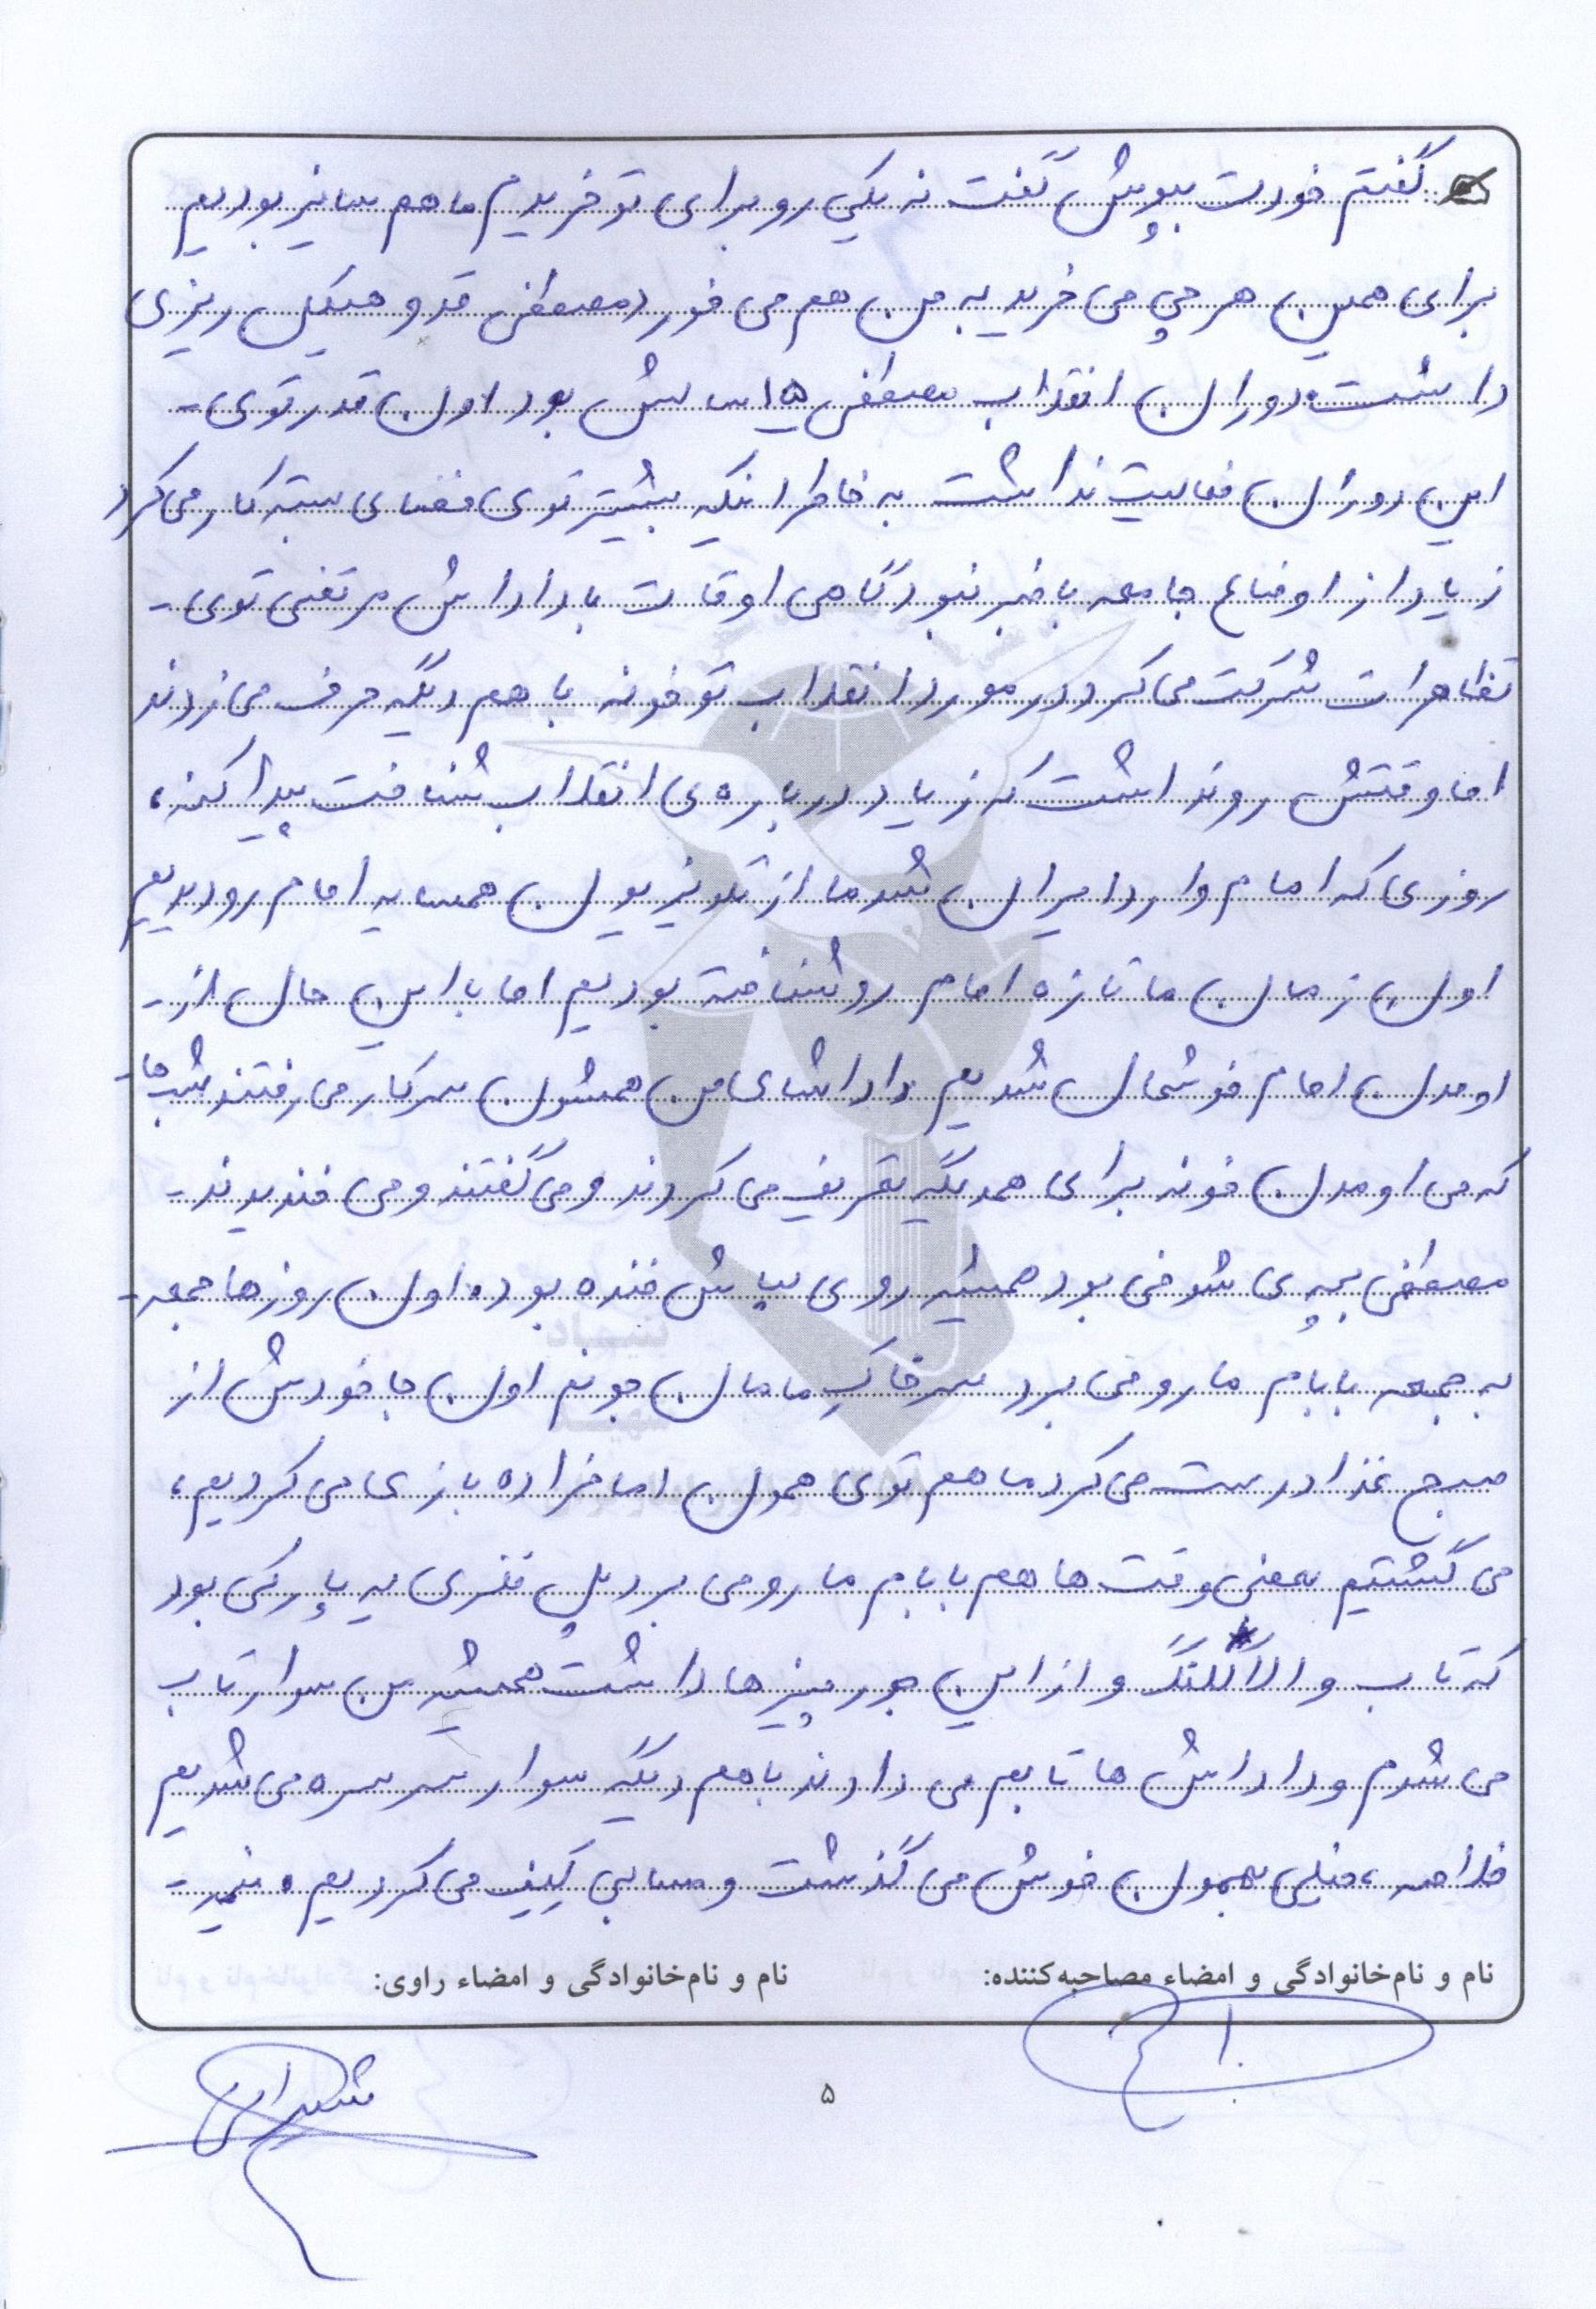 گفتم خودت بپوش گفت نه یکی رو برای تو خریدم ما هم سایز بودیم
برای همین هر چی می خرید به من هم می خورد مصطفی قد و هیکل ریزی
داشت. دوران انقلاب مصطفی ۱۵ سالش بود اون قدر توی-
این دوران فعالیت نداشت به خاطر اینکه بیشتر توی فضای بسته کار می کرد
زیاد از اوضاع جامعه با خبر نبود گاهی اوقات با داداش مرتضی توی-
تظاهرات شرکت می کرد در مورد انقلاب تو خونه با هم دیگه حرف می زدند
اما وقتش رو نداشت که زیاد درباره ی انقلاب شناخت پیدا کنه،
روزی که امام وارد ایران شد ما از تلویزیون همسایه امام رو دیدیم
اون زمان ما تازه امام رو شناخته بودیم اما با این حال از-
اومدن امام خوشحال شدیم داداشای من همشون سرکار می رفتند شب ها-
که می اومدن خونه برای همدیگه تعریف می کردند و می گفتند و می خندیدند-
مصطفی بچه ی شوخی بود همیشه روی لباش خنده بود. اون روزها جمعه-
به جمعه بابام ما رو می برد سر خاکِ مامان جونم اون جا خودش از
صبح غذا درست می کرد ما هم توی همون امامزاده بازی می کردیم،
می گشتیم بعضی وقت ها هم بابام ما رو می برد پل فلزی یه پارکی بود
که تاب و الاکلنگ و از این جور چیزها داشت همیشه من سوار تاب
می شدم و داداش ها تابم می دادند با هم دیگه سوار سرسره می شدیم
خلاصه، خیلی بهمون خوش می گذشت و حسابی کِیف می کردیم.
نام و نام‌خانوادگی و امضاء مصاحبه‌کننده: نام و نام‌خانوادگی و امضاء راوی:
۵